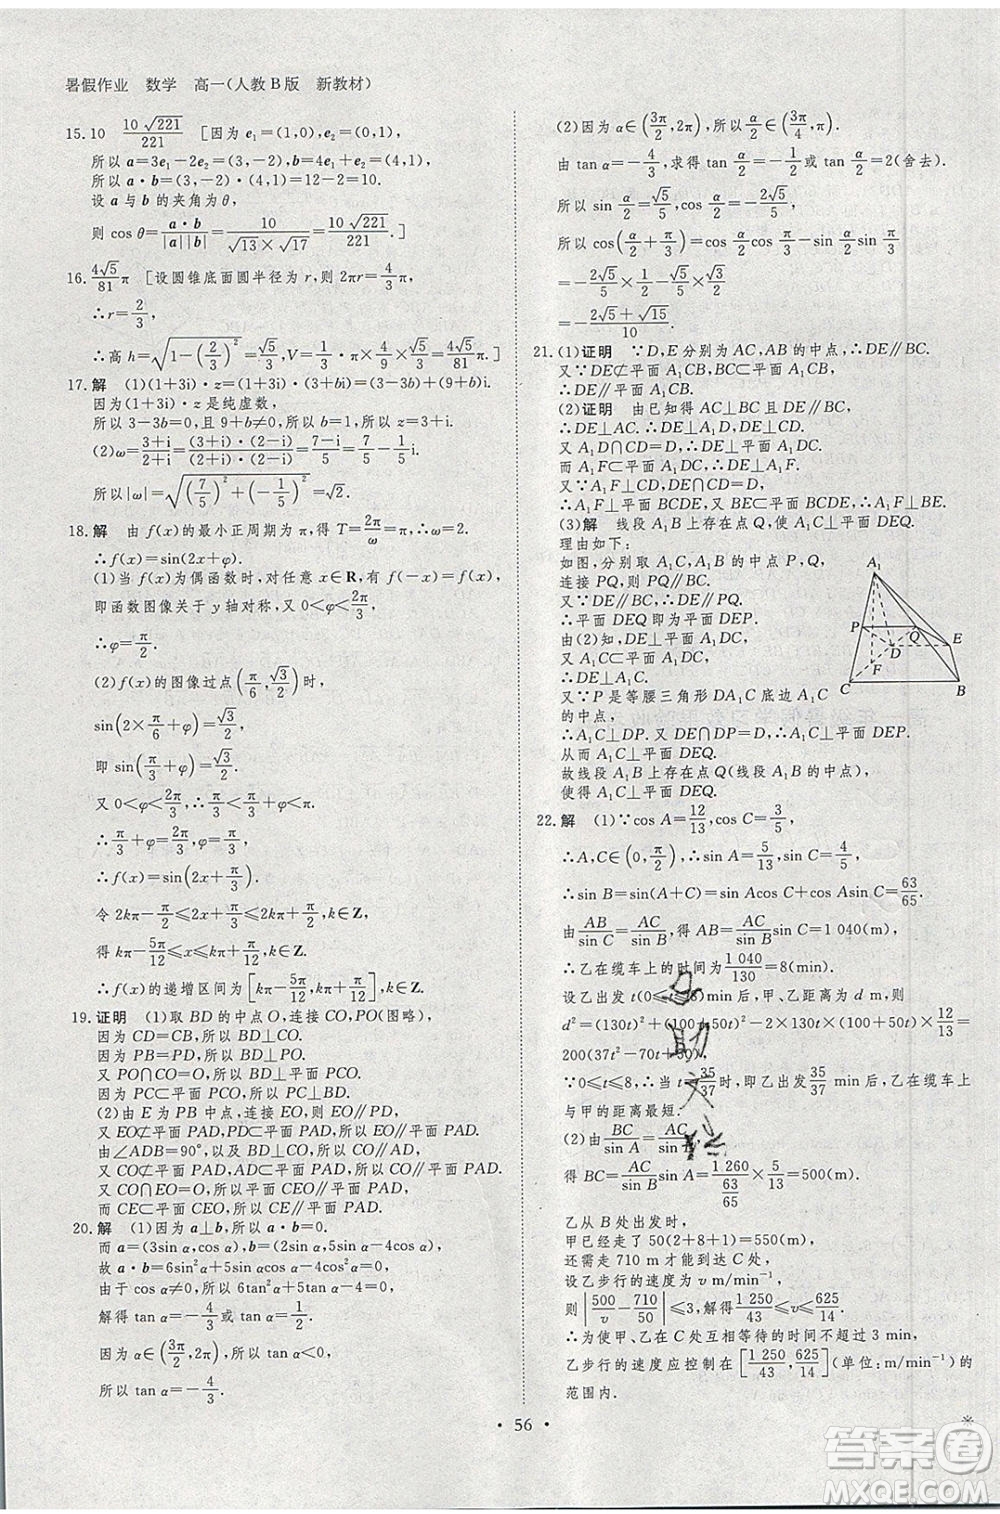 暑假作业 数学 高一(人教B版 新教材)
15.10 10√221/221 [因为e₁=(1,0),e₂=(0,1),
所以a=3e₁-2e₂=(3,-2),b=4e₁+e₂=(4,1),
所以a·b=(3,-2)·(4,1)=12-2=10.
设a与b的夹角为θ,
则cos θ=a·b/|a||b|=10/(√13×√17)=10√221/221.]
16.4√5/81π [设圆锥底面圆半径为r,则2πr=4/3π,
∴r=2/3,
∴高h=√(1-(2/3)²)=√5/3,V=1/3·π·r²·h=4√5/81π.]
17.解 (1)(1+3i)·z=(1+3i)·(3+bi)=(3-3b)+(9+b)i.
因为(1+3i)·z是纯虚数,
所以3-3b=0,且9+b≠0,所以b=1,所以z=3+i.
(2)ω=(3+i)/(2+i)=(3+i)·(2-i)/(2+i)·(2-i)=(7-i)/5=7/5-1/5i.
所以|ω|=√((7/5)²+(-1/5)²)=√2.
18.解 由f(x)的最小正周期为π,得T=2π/ω=π,∴ω=2.
∴f(x)=sin(2x+φ).
(1)当f(x)为偶函数时,对任意x∈R,有f(-x)=f(x),
即函数图像关于y轴对称,又0<φ<2π/3,
∴φ=π/2.
(2)f(x)的图像过点(π/6,√3/2)时,
sin(2×π/6+φ)=√3/2,
即sin(π/3+φ)=√3/2.
又0<φ<2π/3,∴π/3<π/3+φ<π.
∴π/3+φ=2π/3,φ=π/3.
∴f(x)=sin(2x+π/3).
令2kπ-π/2≤2x+π/3≤2kπ+π/2,k∈Z,
得kπ-5π/12≤x≤kπ+π/12,k∈Z.
∴f(x)的递增区间为[kπ-5π/12,kπ+π/12],k∈Z.
19.证明 (1)取BD的中点O,连接CO,PO(图略),
因为CD=CB,所以△CBD为等腰三角形,所以BD⊥CO.
因为PB=PD,所以△PBD为等腰三角形,所以BD⊥PO.
又PO∩CO=O,所以BD⊥平面PCO.
因为PC⊂平面PCO,所以PC⊥BD.
(2)由E为PB中点,连接EO,则EO∥PD,
又EO⊄平面PAD,PD⊂平面PAD,所以EO∥平面PAD.
由∠ADB=90°,以及BD⊥CO,所以CO∥AD,
又CO⊄平面PAD,AD⊂平面PAD,所以CO∥平面PAD.
又CO∩EO=O,所以平面CEO∥平面PAD,
而CE⊂平面CEO,所以CE∥平面PAD.
20.解 (1)因为a⊥b,所以a·b=0.
而a=(3sin α,cos α),b=(2sin α,5sin α-4cos α),
故a·b=6sin²α+5sin αcos α-4cos²α=0.
由于cos α≠0,所以6tan²α+5tan α-4=0,
解得tan α=-4/3或tan α=1/2.
因为α∈(3π/2,2π),所以tan α<0,
所以tan α=-4/3.
(2)因为α∈(3π/2,2π),所以α/2∈(3π/4,π).
由tan α=-4/3,求得tan α/2=-1/2或tan α/2=2(舍去).
所以sin α/2=√5/5,cos α/2=-2√5/5.
所以cos(α/2+π/3)=cos α/2cos π/3-sin α/2sin π/3
=-2√5/5×1/2-√5/5×√3/2
=-(2√5+√15)/10.
21.(1)证明 ∵D,E分别为AC,AB的中点,∴DE∥BC.
又∵DE⊄平面A₁CB,BC⊂平面A₁CB,
∴DE∥平面A₁CB.
(2)证明 由已知得AC⊥BC且DE∥BC,
∴DE⊥AC.∴DE⊥A₁D,DE⊥CD.
又A₁D∩CD=D,∴DE⊥平面A₁DC.
而A₁F⊂平面A₁DC,∴DE⊥A₁F.
又∵A₁F⊥CD,DE∩CD=D,
∴A₁F⊥平面BCDE,又BE⊂平面BCDE,∴A₁F⊥BE.
(3)解 线段A₁B上存在点Q,使A₁C⊥平面DEQ.
理由如下:
如图,分别取A₁C,A₁B的中点P,Q,
连接PQ,则PQ∥BC.
又∵DE∥BC,∴DE∥PQ.
∴平面DEQ即为平面DEP.
由(2)知,DE⊥平面A₁DC,
又∵A₁C⊂平面A₁DC,
∴DE⊥A₁C.
又∵P是等腰三角形DA₁C底边A₁C
的中点,
∴A₁C⊥DP.又DE∩DP=D,
∴A₁C⊥平面DEP.
从而A₁C⊥平面DEQ.
故线段A₁B上存在点Q(线段A₁B的中点),
使得A₁C⊥平面DEQ.
A₁
P
Q
E
D
F
C
B
22.解 (1)∵cos A=12/13,cos C=3/5,
∴A,C∈(0,π/2),∴sin A=5/13,sin C=4/5.
∴sin B=sin(A+C)=sin Acos C+cos Asin C=63/65.
由AB/sin C=AC/sin B,得AB=AC/sin B×sin C=1 040(m),
∴乙在缆车上的时间为1 040/130=8(min).
设乙出发t(0≤t≤8)min后,甲、乙距离为d m,则
d²=(130t)²+(100+50t)²-2×130t×(100+50t)×12/13=
200(37t²-70t+50).
∵0≤t≤8,∴当t=35/37时,即乙出发35/37 min后,乙在缆车上
与甲的距离最短.
(2)由BC/sin A=AC/sin B,
得BC=AC/sin B×sin A=1 260/(63/65)×5/13=500(m).
乙从B处出发时,
甲已走了50(2+8+1)=550(m),
还需走710 m才能到达C处,
设乙步行的速度为v m/min⁻¹,
则|500/v-710/50|≤3,解得1 250/43≤v≤625/14.
∴为使甲、乙在C处互相等待的时间不超过3 min,
乙步行的速度应控制在[1 250/43,625/14](单位:m/min⁻¹)的
范围内.
·56·
答案卷
MXQE.COM